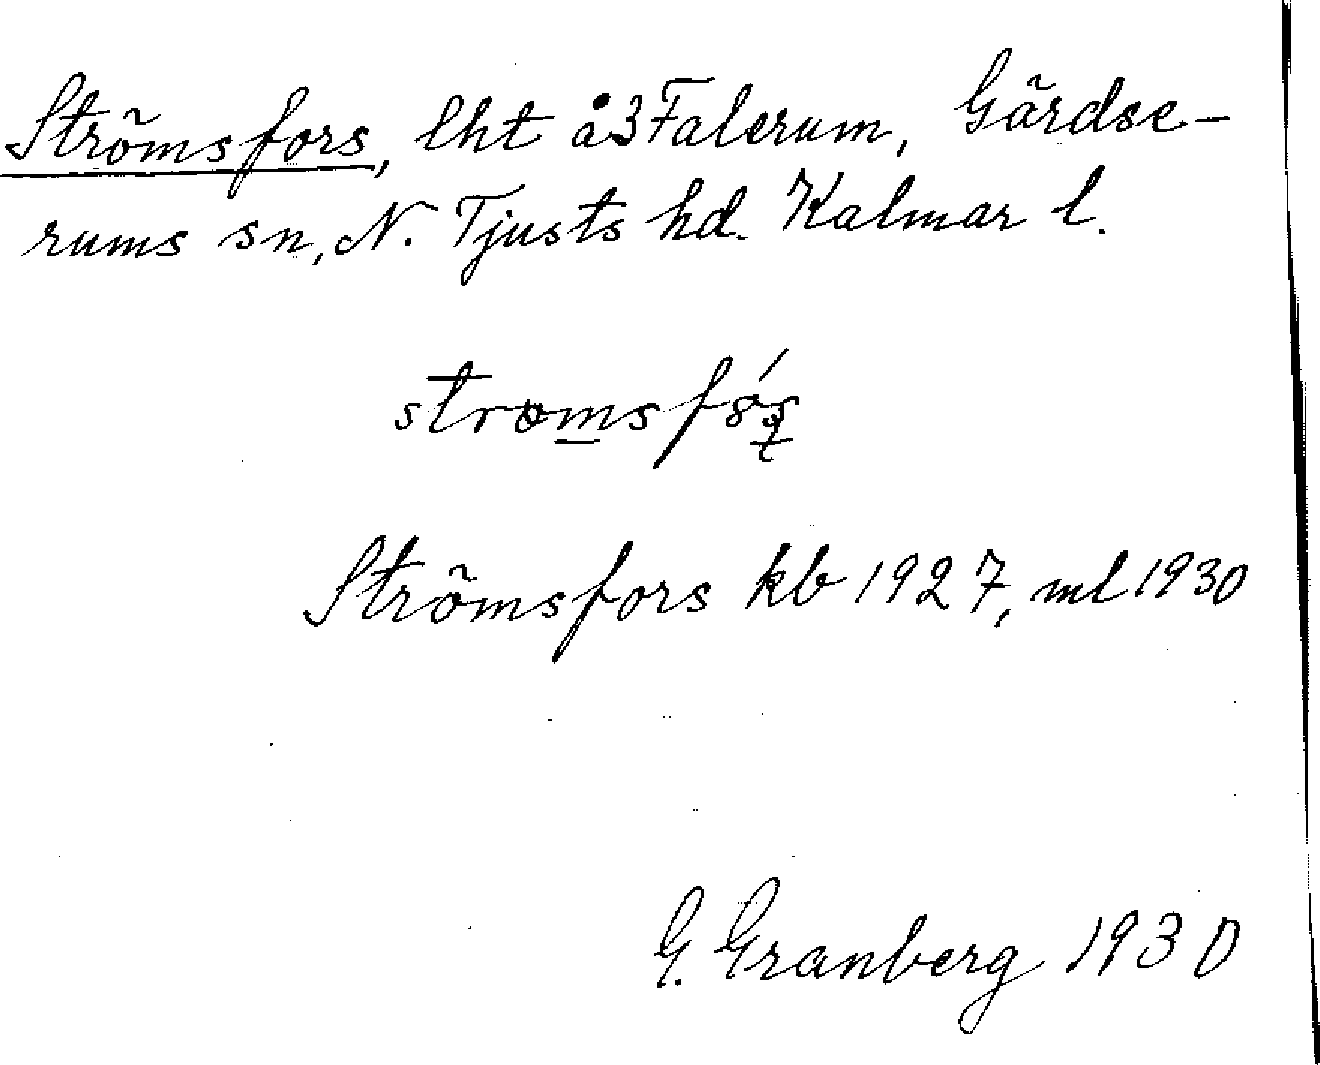 Strömsfors, lht å 3 Falerum, Gärdse-
rums sn, N. Tjusts hd. Kalmar l.
Strömsfors kb 1927, ml 1930
G. Granberg 1930